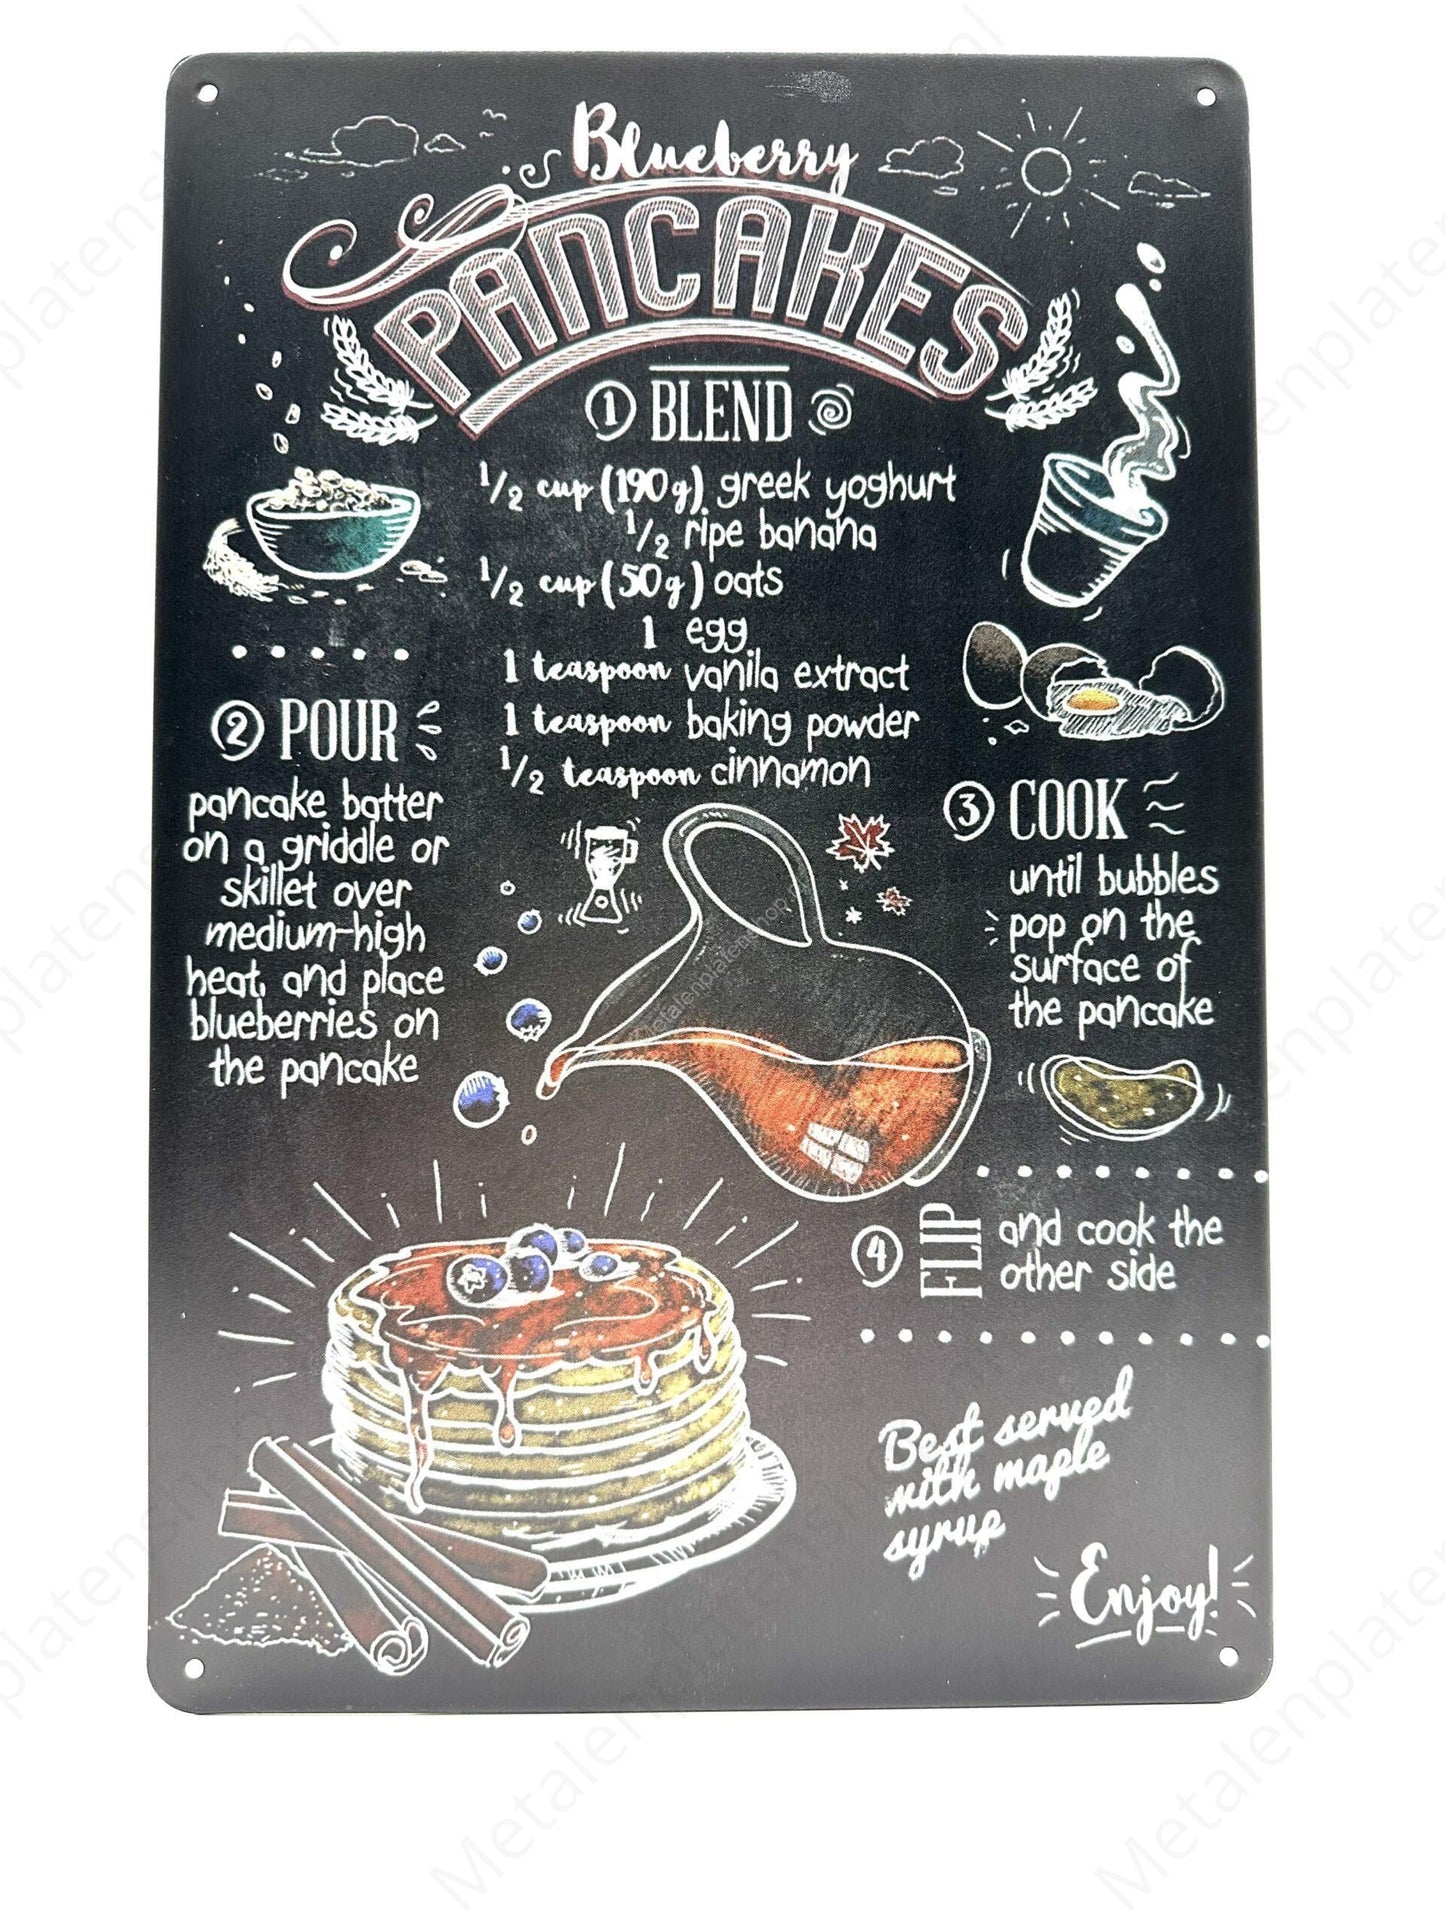 Blueberry
PANCAKES
1 BLEND
1/2 cup (190g) greek yoghurt
1/2 ripe banana
1/2 cup (50g) oats
1 egg
1 teaspoon vanila extract
1 teaspoon baking powder
1/2 teaspoon cinnamon
2 POUR
pancake batter
on a griddle or
skillet over
medium-high
heat, and place
blueberries on
the pancake
3 COOK
until bubbles
pop on the
surface of
the pancake
4 FLIP
and cook the
other side
Best served
with maple
syrup
Enjoy!
Metalenplatenshop